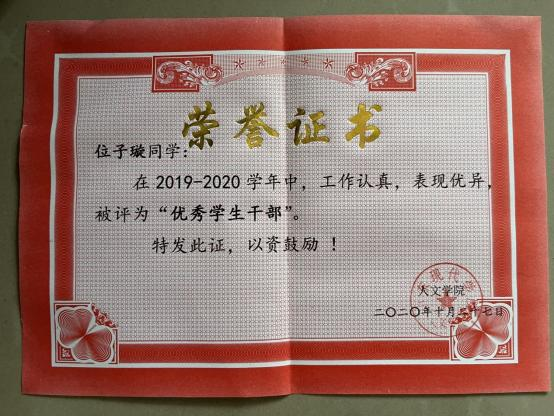 荣誉证书
位子璇同学：
在2019-2020学年中，工作认真，表现优异，
被评为“优秀学生干部”。
特发此证，以资鼓励！
人文学院
二〇二〇年十月二十七日